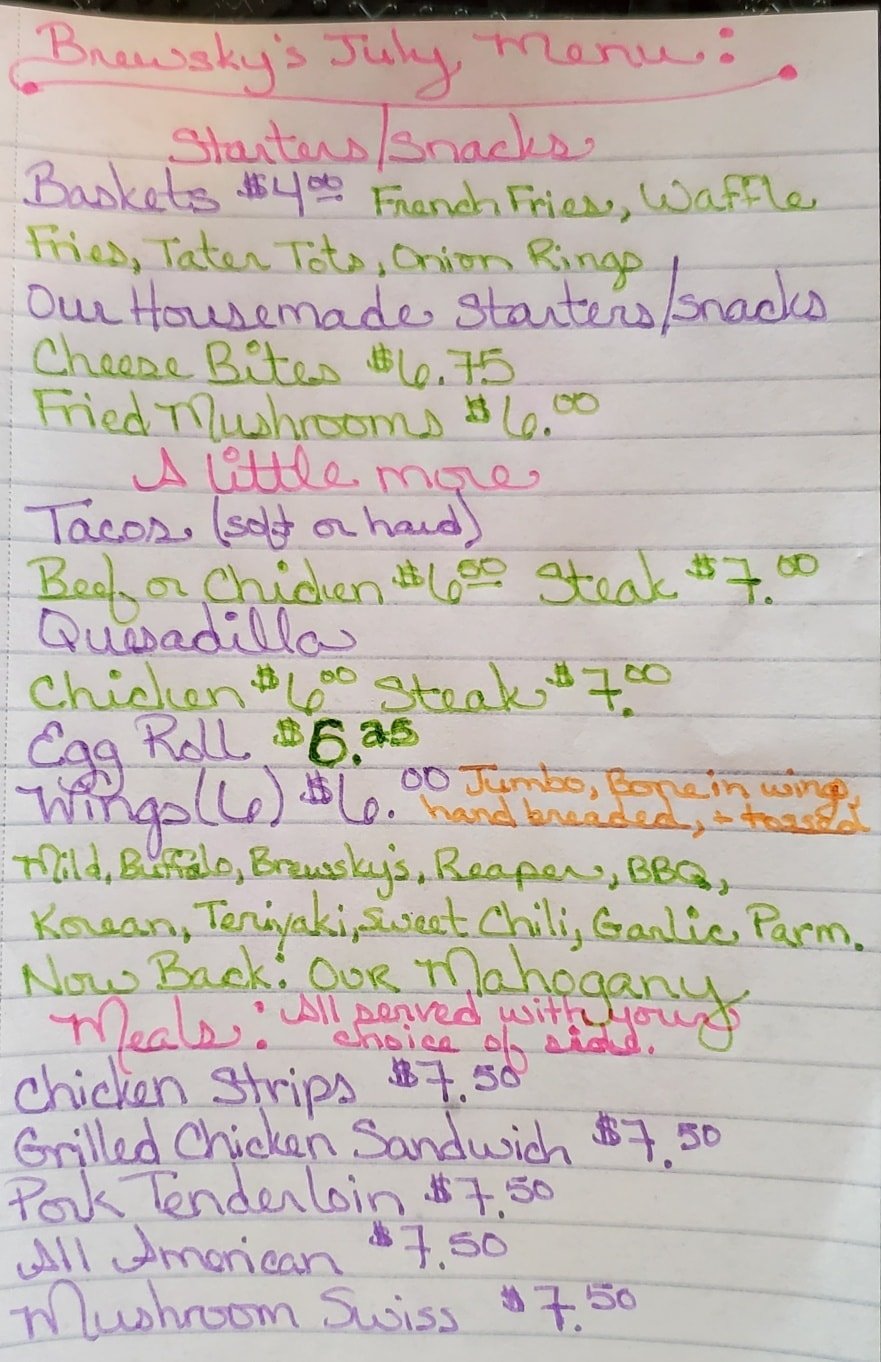 Brewsky's July Menu:
Starters/Snacks
Baskets $4.00 French Fries, Waffle
Fries, Tater Tots, Onion Rings
Our Housemade Starters/Snacks
Cheese Bites $6.75
Fried Mushrooms $6.00
A little more
Tacos (soft or hard)
Beef or Chicken $6.00 Steak $7.00
Quesadilla
Chicken $6.00 Steak $7.00
Egg Roll $6.25
Wings (6) $6.00 Jumbo, Bone in wing,
hand breaded, + tossed
Mild, Buffalo, Brewsky's, Reaper, BBQ,
Korean, Teriyaki, Sweet Chili, Garlic Parm.
Now Back: Our Mahogany
Meals: All served with your
choice of side.
Chicken Strips $7.50
Grilled Chicken Sandwich $7.50
Pork Tenderloin $7.50
All American $7.50
Mushroom Swiss $7.50